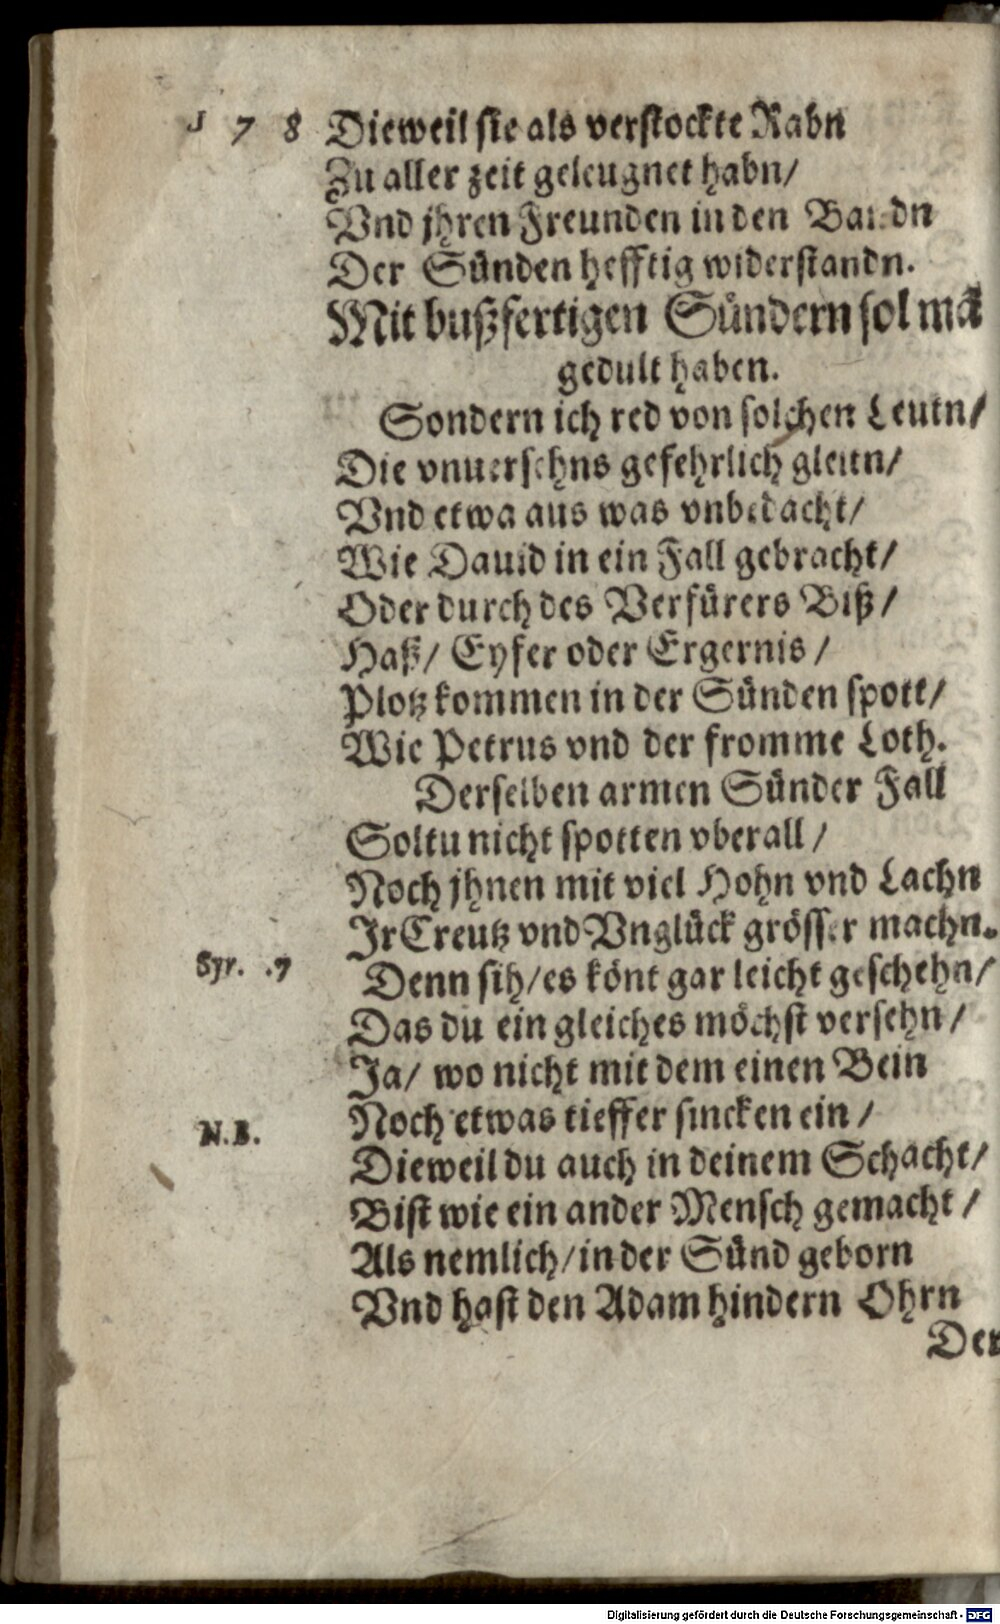 1 7 8 Dieweil sie als verstockte Rabn
Zu aller zeit geleugnet habn/
Vnd jhren Freunden in den Bandn
Der Sünden hefftig widerstandn.
Mit bußfertigen Sündern sol mã
gedult haben.
Sondern ich red von solchen Leutn/
Die vnuersehns gefehrlich gleitn/
Vnd etwa aus was vnbedacht/
Wie Dauid in ein Fall gebracht/
Oder durch des Verfürers Biß/
Haß/ Eyfer oder Ergernis/
Plotz kommen in der Sünden spott/
Wie Petrus vnd der fromme Loth.
Derselben armen Sünder Fall
Soltu nicht spotten vberall/
Noch jhnen mit viel Hohn vnd Lachn
Jr Creutz vnd Vnglück grösser machn.
Syr. 7 Denn sih/ es könt gar leicht geschehn/
Das du ein gleiches möchst versehn/
Ja/ wo nicht mit dem einen Bein
N.B. Noch etwas tieffer sincken ein/
Dieweil du auch in deinem Schacht/
Bist wie ein ander Mensch gemacht/
Als nemlich/ in der Sünd geborn
Vnd hast den Adam hindern Ohrn
Der
Digitalisierung gefördert durch die Deutsche Forschungsgemeinschaft - DFG